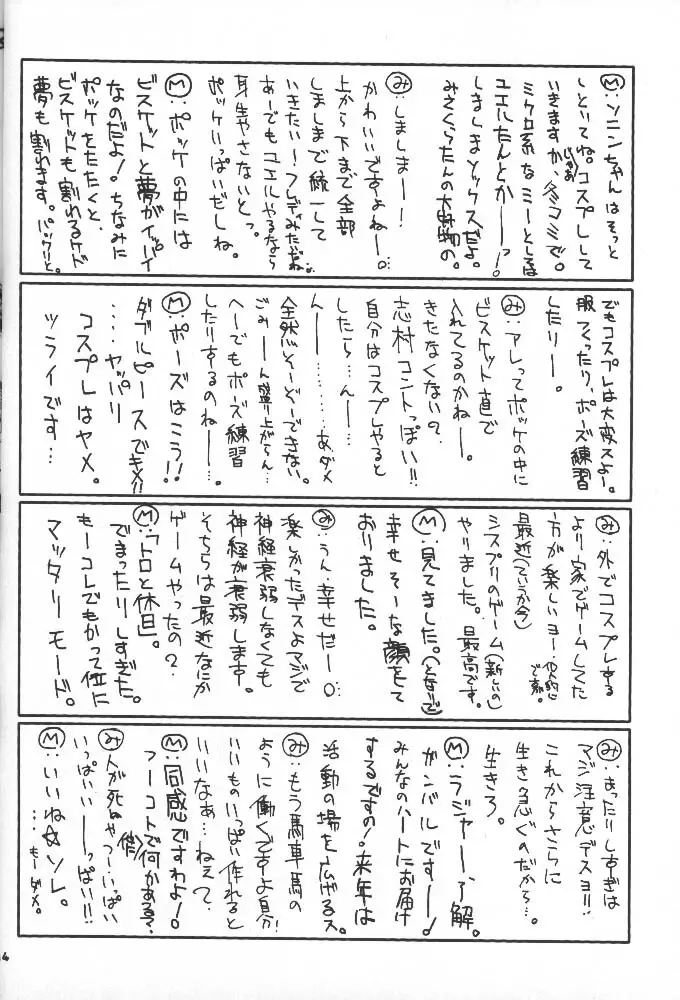 Ⓜ:ソニンちゃんはそっと
しといてね。コスプレして
じゃあ
いきますか、冬コミで。
ミクロ系なミーとしては
ユエルたんとかーっ!
しましまソックスだよ。
みさくらたんの大好物の。
み:しましまー!
かわいいですよねー。
上から下まで全部
しましまで統一して
いきたい!フレディみたいだね。
あーでもユエルやるなら
身生やさないとっ。
ポッケいっぱいだしね。
Ⓜ:ポッケの中には
ビスケットと夢がイッパイ
なのだよ!ちなみに
ポッケをたたくと、
ビスケットも割れるケド
夢も割れます。パックリと。
でもコスプレは大変スよー。
服つくったり、ポーズ練習
したりー。
み:アレってポッケの中に
ビスケット直で
入れてるのかねー。
きたなくないの?
志村コントっぽい!!
自分はコスプレやると
したら…んー…
んー……あ、ダメ
全然そーぞーできない。
ごみーん盛り上がらん…
へーでもポーズ練習
したりするのねー…。
Ⓜ:ポーズはこう!!
ダブルピースでキメ!!
……ヤッパリ
コスプレはヤメ。
ツライです…
み:外でコスプレする
より家でゲームしてた
方が楽しいヨー…個人的に
です。
最近(ていうか今)
シスプリのゲーム(新しいの)
やりました。最高です。
Ⓜ:見てました。(となりで)
幸せそーな顔をして
おりました。
み:うん…幸せだー。
楽しかったデスよマジで
神経衰弱しなくても
神経が衰弱します。
そちらは最近なにか
ゲームやったの?
Ⓜ:「トロと休日」。
でまったりしすぎた。
もーコレでもかって位に
マッタリモード。
み:まったりしすぎは
マジ注意デスヨ!!
これからさらに
生き急ぐのだから…。
生きろ。
Ⓜ:ラジャー、了解。
ガンバルですー!
みんなのハートにお届け
するですの!来年は
活動の場を広げるス。
み:もう馬車馬の
ように働くですよ自分!
いいものいっぱい作れると
いいなぁ…ねえ?
Ⓜ:同感ですわよ!
フーコトで何かある?
み:人が死ぬやつーいっぱい
(作)
いっぱいいーっぱい!!
Ⓜ:いいね☆ソレ。
…もーダメ。
4